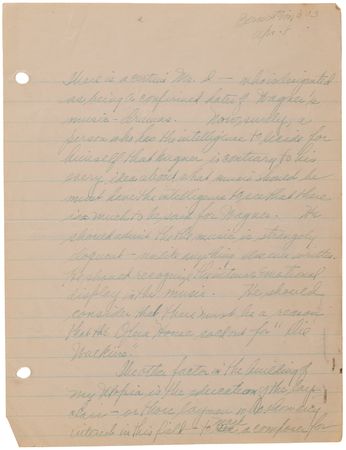 Bernstein, # 13
Apr. 8
There is a certain Mr. D — who is designated
as being a confirmed hater of Wagner's
music-dramas. Now, surely, a
person who has the intelligence to decide for
himself that Wagner is contrary to his
every idea about what music should be
must have the intelligence to see that there
is much to be said for Wagner. He
should admit that the music is strangely
eloquent — unlike anything else ever written.
He should recognize the intense emotional
display in the music. He should
consider that there must be a reason
that the Opera House sells out for "Die
Walküre".
Another factor in the building of
my Utopia is the education of the lay
class — or those laymen who
interest in this field — to a composer for